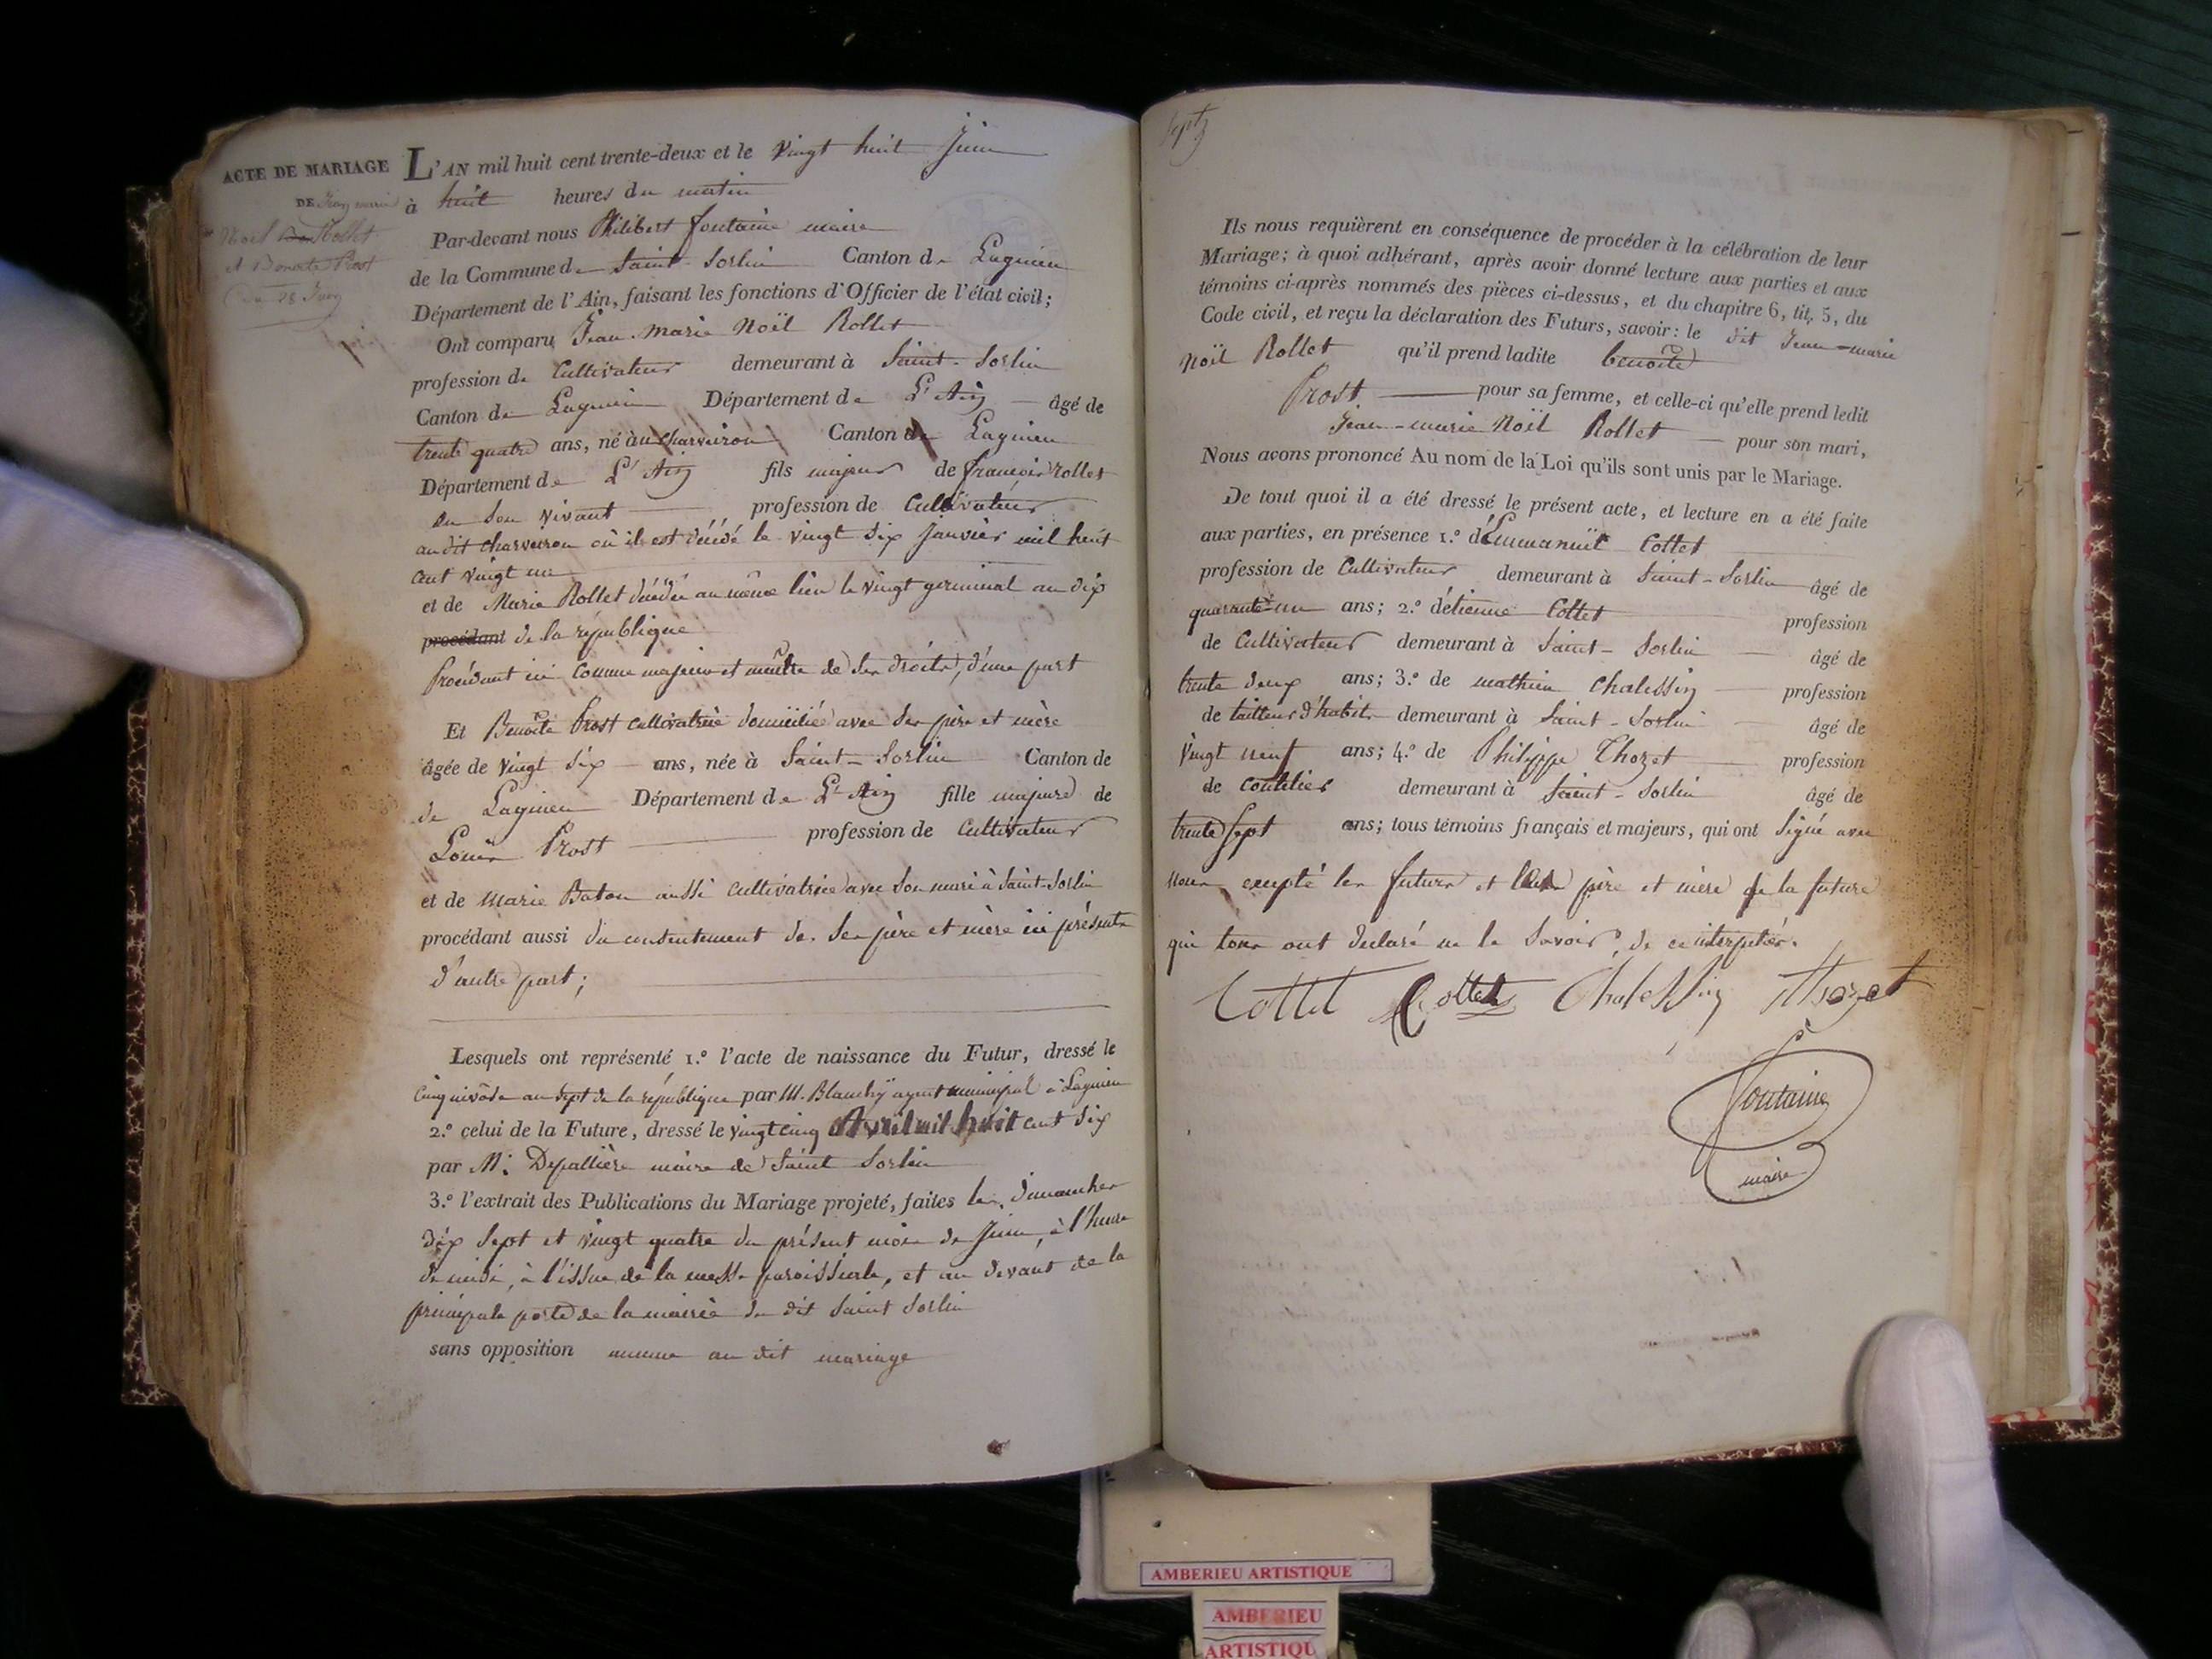 ACTE DE MARIAGE
DE Jean marie
Noël Rollet
et Benoite Prost
28 Juin
L'AN mil huit cent trente-deux et le vingt huit Juin
à huit heures du matin
Par-devant nous Philibert fontaine maire
de la Commune de Saint-Sorlin Canton de Lagnieu
Département de l'Ain, faisant les fonctions d'Officier de l'état civil;
Ont comparu Jean-marie Noël Rollet
profession de Cultivateur demeurant à Saint-Sorlin
Canton de Lagnieu Département de L'Ain âgé de
trente quatre ans, né à charveiron Canton de Lagnieu
Département de L'Ain fils majeur de françois Rollet
en son vivant profession de Cultivateur
au dit charveiron où il est décédé le vingt six janvier mil huit
cent vingt un
et de Marie Rollet décédée au même lieu le vingt germinal an dix
procédant de la république
Procédant ici comme majeur et maître de ses droits, d'une part
Et Benoite Prost cultivatrice domiciliée avec ses père et mère
âgée de vingt six ans, née à Saint-Sorlin Canton de
de Lagnieu Département de L'Ain fille majeure de
Louis Prost profession de Cultivateur
et de Marie Baton aussi cultivatrice avec son mari à Saint-Sorlin
procédant aussi du consentement de ses père et mère ici présents
d'autre part;
Lesquels ont représenté 1.° l'acte de naissance du Futur, dressé le
cinq nivôse an sept de la république par M. Blanchy agent municipal à Lagnieu
2.° celui de la Future, dressé le vingt cinq Avril mil huit cent six
par M. Depallière maire de Saint Sorlin
3.° l'extrait des Publications du Mariage projeté, faites les dimanches
dix sept et vingt quatre du présent mois de Juin, à l'heure
de midi, à l'issue de la messe paroissiale, et au devant de la
principale porte de la mairie du dit Saint Sorlin
sans opposition aucune au dit mariage
sept
Ils nous requièrent en conséquence de procéder à la célébration de leur
Mariage; à quoi adhérant, après avoir donné lecture aux parties et aux
témoins ci-après nommés des pièces ci-dessus, et du chapitre 6, tit. 5, du
Code civil, et reçu la déclaration des Futurs, savoir: le dit Jean-marie
Noël Rollet qu'il prend ladite benoite
Prost pour sa femme, et celle-ci qu'elle prend ledit
Jean-marie Noël Rollet pour son mari,
Nous avons prononcé Au nom de la Loi qu'ils sont unis par le Mariage.
De tout quoi il a été dressé le présent acte, et lecture en a été faite
aux parties, en présence 1.° d'Emmanuël Cottet
profession de Cultivateur demeurant à Saint-Sorlin âgé de
quarante-un ans; 2.° d'étienne Cottet profession
de Cultivateur demeurant à Saint-Sorlin âgé de
trente deux ans; 3.° de mathieu Chalessin profession
de tailleur d'habits demeurant à Saint-Sorlin âgé de
vingt neuf ans; 4.° de Philippe Thozet profession
de coutelier demeurant à Saint-Sorlin âgé de
trente sept ans; tous témoins français et majeurs, qui ont signé avec
nous, excepté les futurs et les père et mère de la future
qui tous ont déclaré ne le savoir, de ce interpellés.
Cottet Cottet Chalessin Thozet
Fontaine
maire
AMBERIEU ARTISTIQUE
AMBERIEU
ARTISTIQU